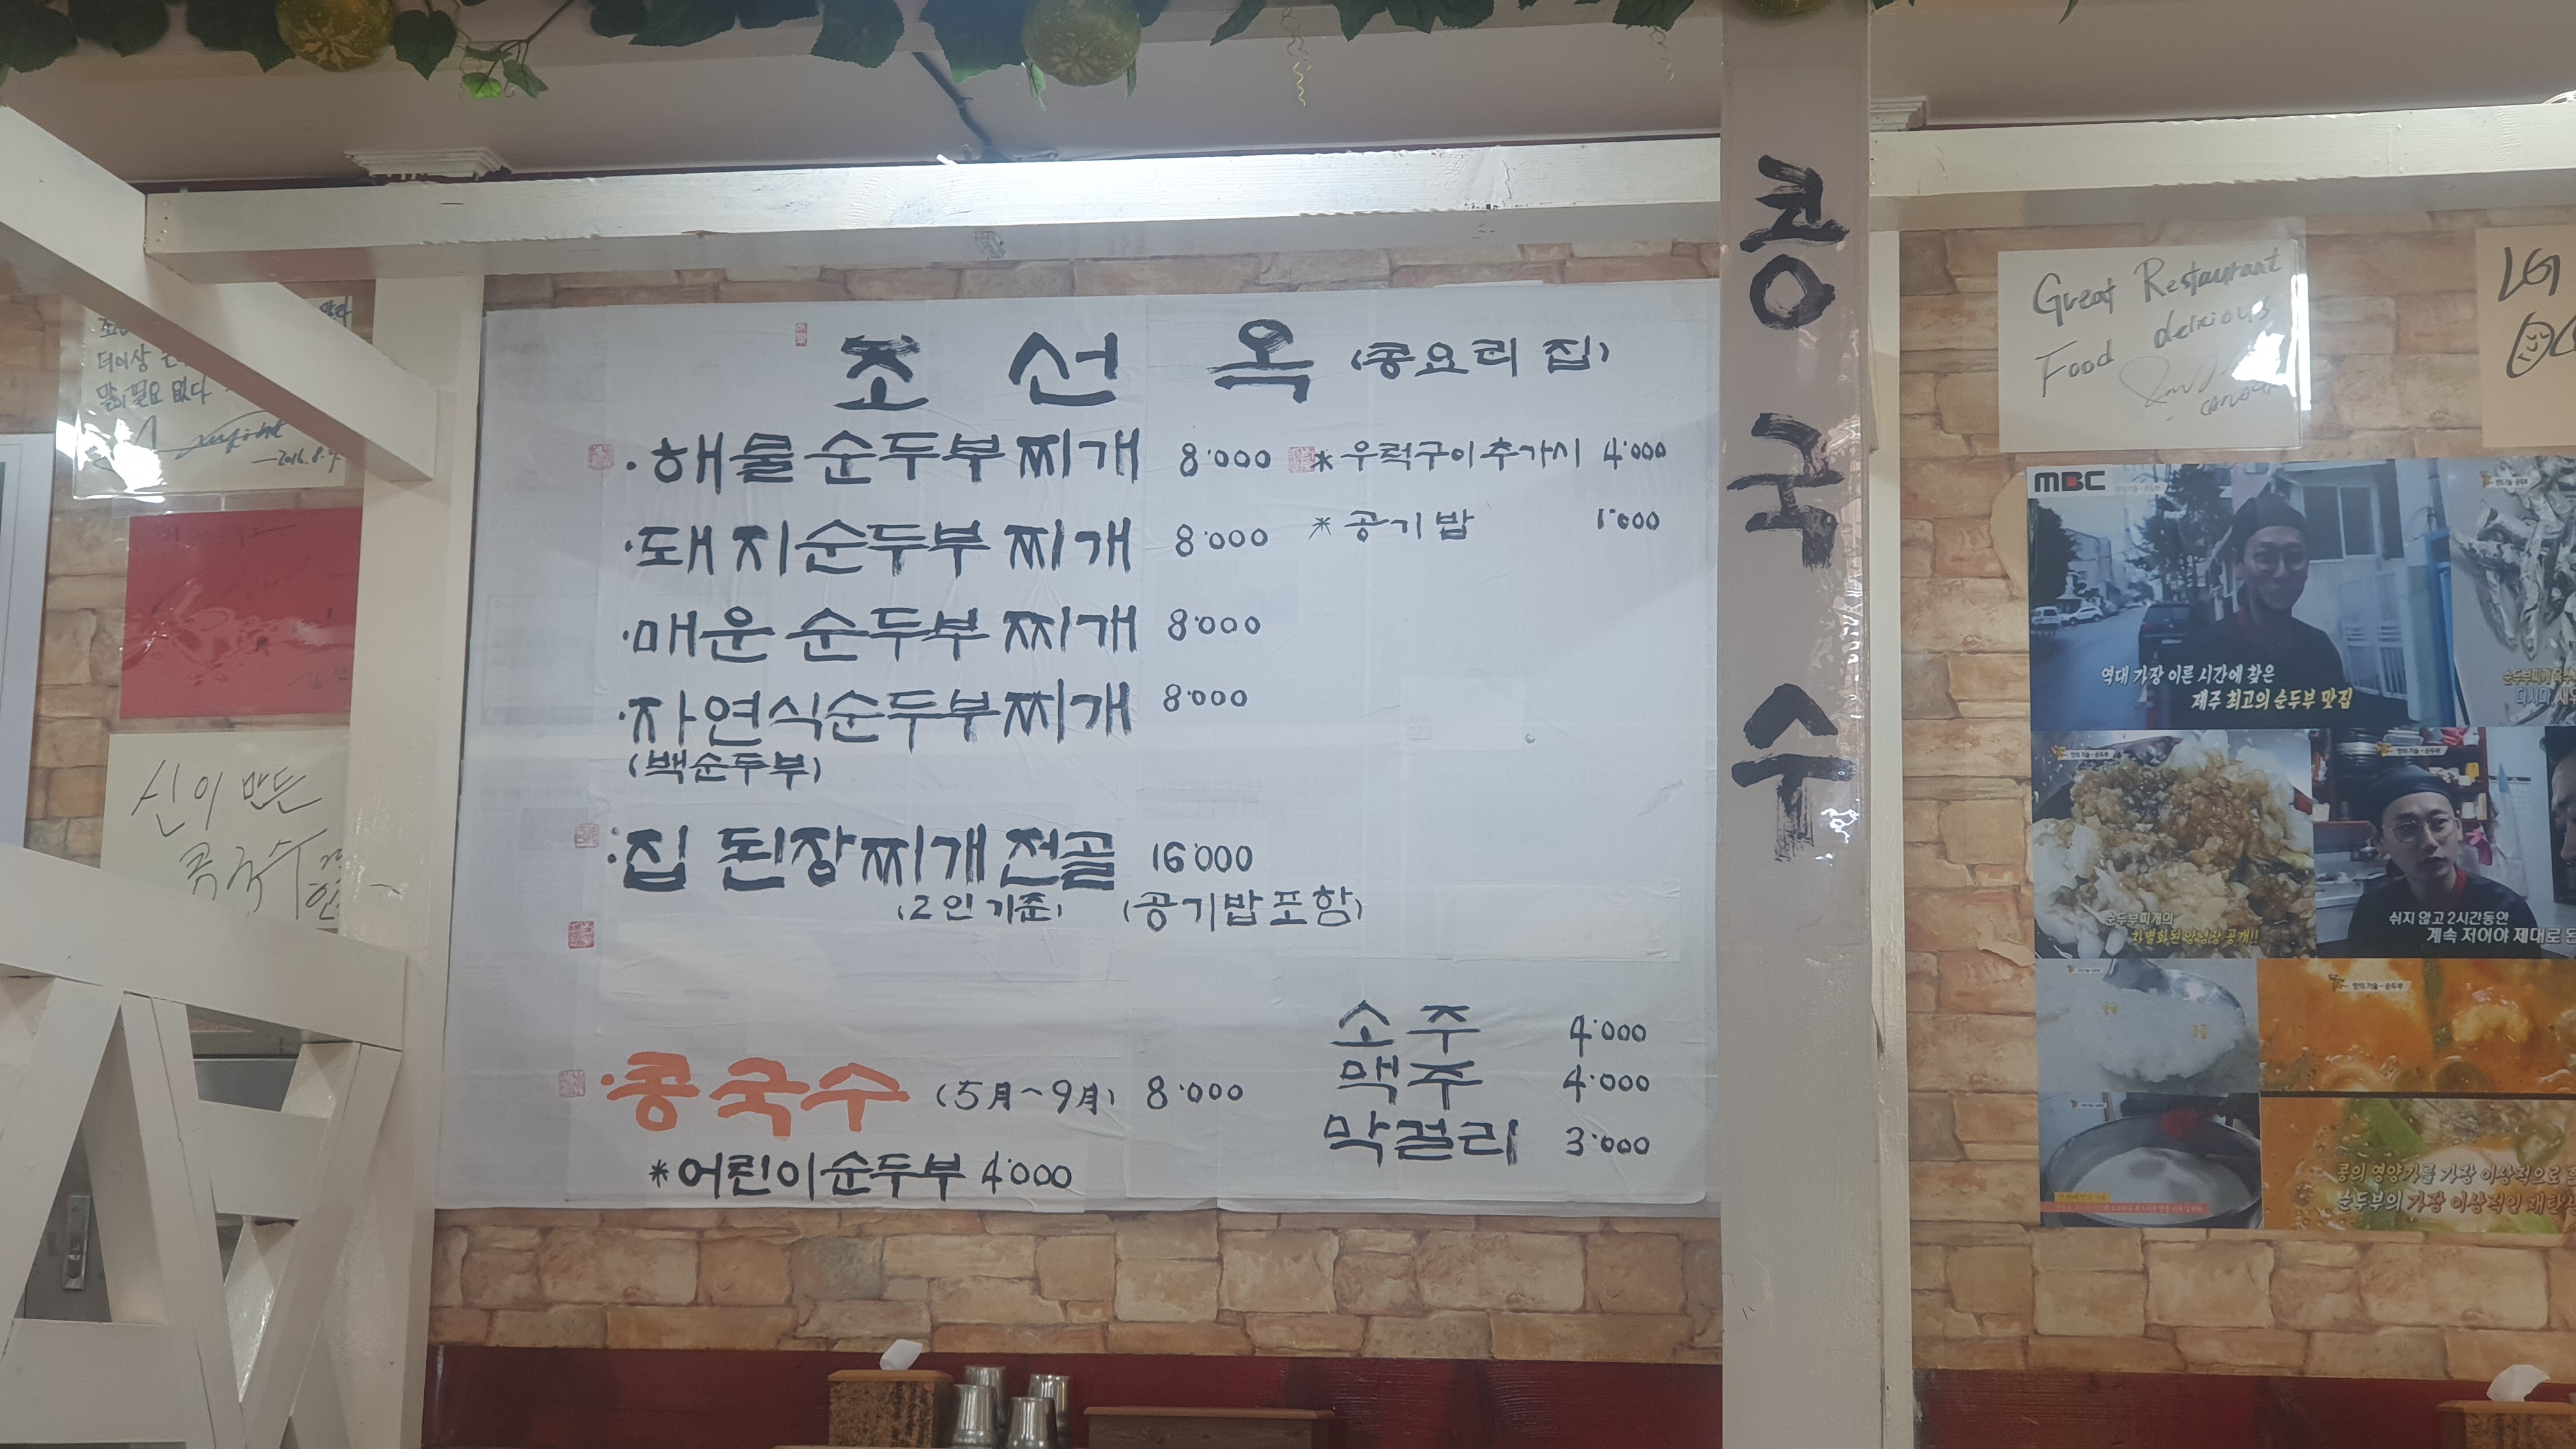 조선옥 (콩요리 집)
· 해물순두부찌개 8'000
* 우럭구이추가시 4'000
· 돼지순두부찌개 8'000
* 공기밥 1'000
· 매운 순두부찌개 8'000
· 자연식순두부찌개 8'000
(백순두부)
· 집 된장찌개전골 16'000
(2인 기준) (공기밥포함)
· 콩국수 (5月~9月) 8'000
* 어린이순두부 4'000
소주 4'000
맥주 4'000
막걸리 3'000
콩국수
더이상
말이 필요 없다
2016.8.
신이 만든
콩국수
Great Restaurant
Food delicious
LG
MBC
역대 가장 이른 시간에 찾은
제주 최고의 순두부 맛집
맛의 기술 - 순두부
순두부찌개의
차별화된 양념장 공개!!
맛의 기술 - 순두부
쉬지 않고 2시간동안
계속 저어야 제대로
맛의 기술 - 순두부
콩의 영양가를 가장 이상적으로
순두부의 가장 이상적인